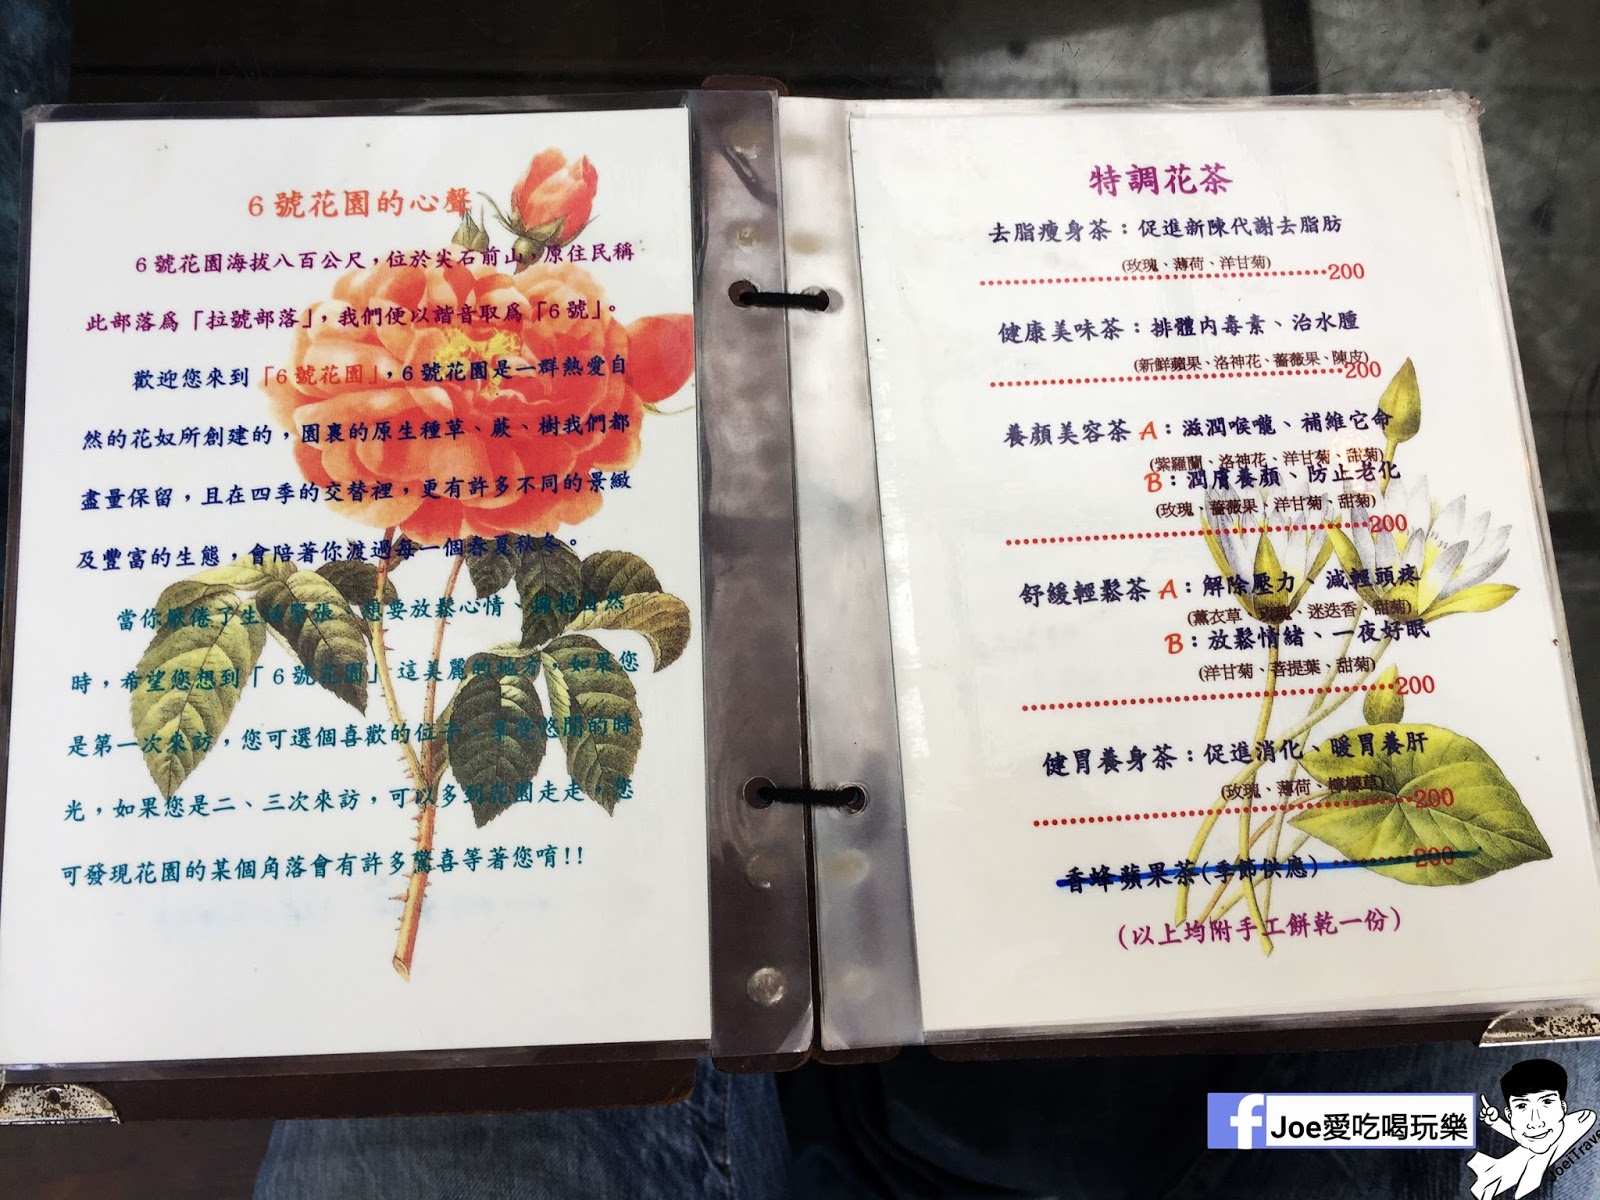 6號花園的心聲
6號花園海拔八百公尺，位於尖石前山，原住民稱
此部落為「拉號部落」，我們便以諧音取為「6號」。
歡迎您來到「6號花園」，6號花園是一群熱愛自
然的花奴所創建的，園裏的原生種草、蕨、樹我們都
盡量保留，且在四季的交替裡，更有許多不同的景緻
及豐富的生態，會陪著你渡過每一個春夏秋冬。
當你厭倦了生活緊張、想要放鬆心情、擁抱自然
時，希望您想到「6號花園」這美麗的地方，如果您
是第一次來訪，您可選個喜歡的位子，享受悠閒的時
光，如果您是二、三次來訪，可以多到花園走走，您
可發現花園的某個角落會有許多驚喜等著您唷!!
特調花茶
去脂瘦身茶：促進新陳代謝去脂肪
(玫瑰、薄荷、洋甘菊)
200
健康美味茶：排體內毒素、治水腫
(新鮮蘋果、洛神花、薔薇果、陳皮)
200
養顏美容茶 A：滋潤喉嚨、補維它命
(紫羅蘭、洛神花、洋甘菊、甜菊)
B：潤膚養顏、防止老化
(玫瑰、薔薇果、洋甘菊、甜菊)
200
舒緩輕鬆茶 A：解除壓力、減輕頭疼
(薰衣草、玫瑰、迷迭香、甜菊)
B：放鬆情緒、一夜好眠
(洋甘菊、菩提葉、甜菊)
200
健胃養身茶：促進消化、暖胃養肝
(玫瑰、薄荷、檸檬草)
200
香蜂蘋果茶(季節供應) 200
(以上均附手工餅乾一份)
f Joe愛吃喝玩樂